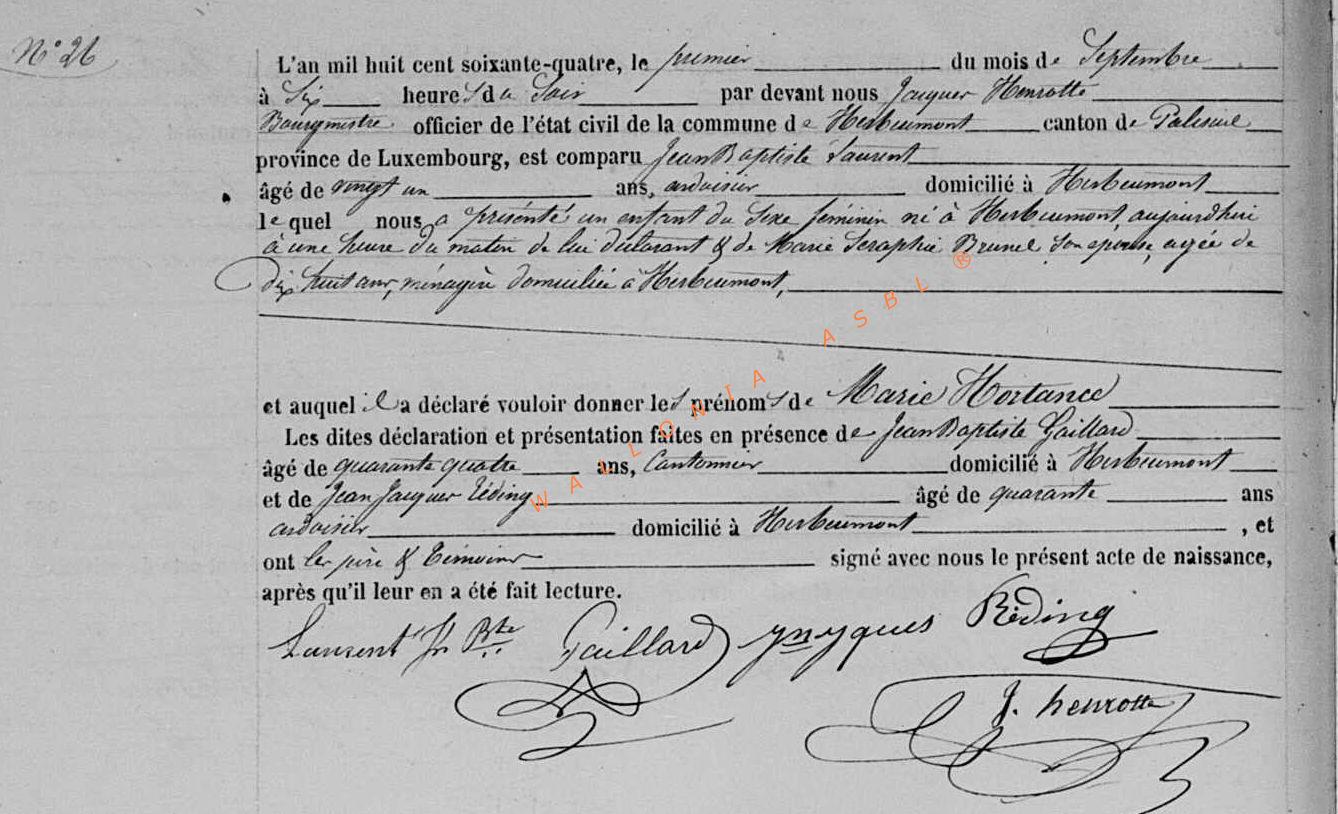 N° 26
L'an mil huit cent soixante-quatre, le premier du mois de Septembre
à Six heures du Soir par devant nous Jacques Henrotte
Bourgmestre officier de l'état civil de la commune de Herbeumont canton de Paliseul
province de Luxembourg, est comparu Jean Baptiste Laurent
âgé de vingt un ans, ardoisier domicilié à Herbeumont
lequel nous a présenté un enfant du Sexe féminin né à Herbeumont, aujourdhui
à une heure du matin de lui déclarant & de Marie Seraphie Brunel Son épouse, agée de
dix huit ans, ménagère domiciliée à Herbeumont,
et auquel il a déclaré vouloir donner les prénoms de Marie Hortance
Les dites déclaration et présentation faites en présence de Jean Baptiste Gaillard
âgé de quarante quatre ans, Cantonnier domicilié à Herbeumont
et de Jean Jacques Réding âgé de quarante ans
ardoisier domicilié à Herbeumont, et
ont les père & témoins signé avec nous le présent acte de naissance,
après qu'il leur en a été fait lecture.
Laurent Jn Bte Gaillard Jn Jques Réding
J. henrotte
WALLONIA ASBL ®